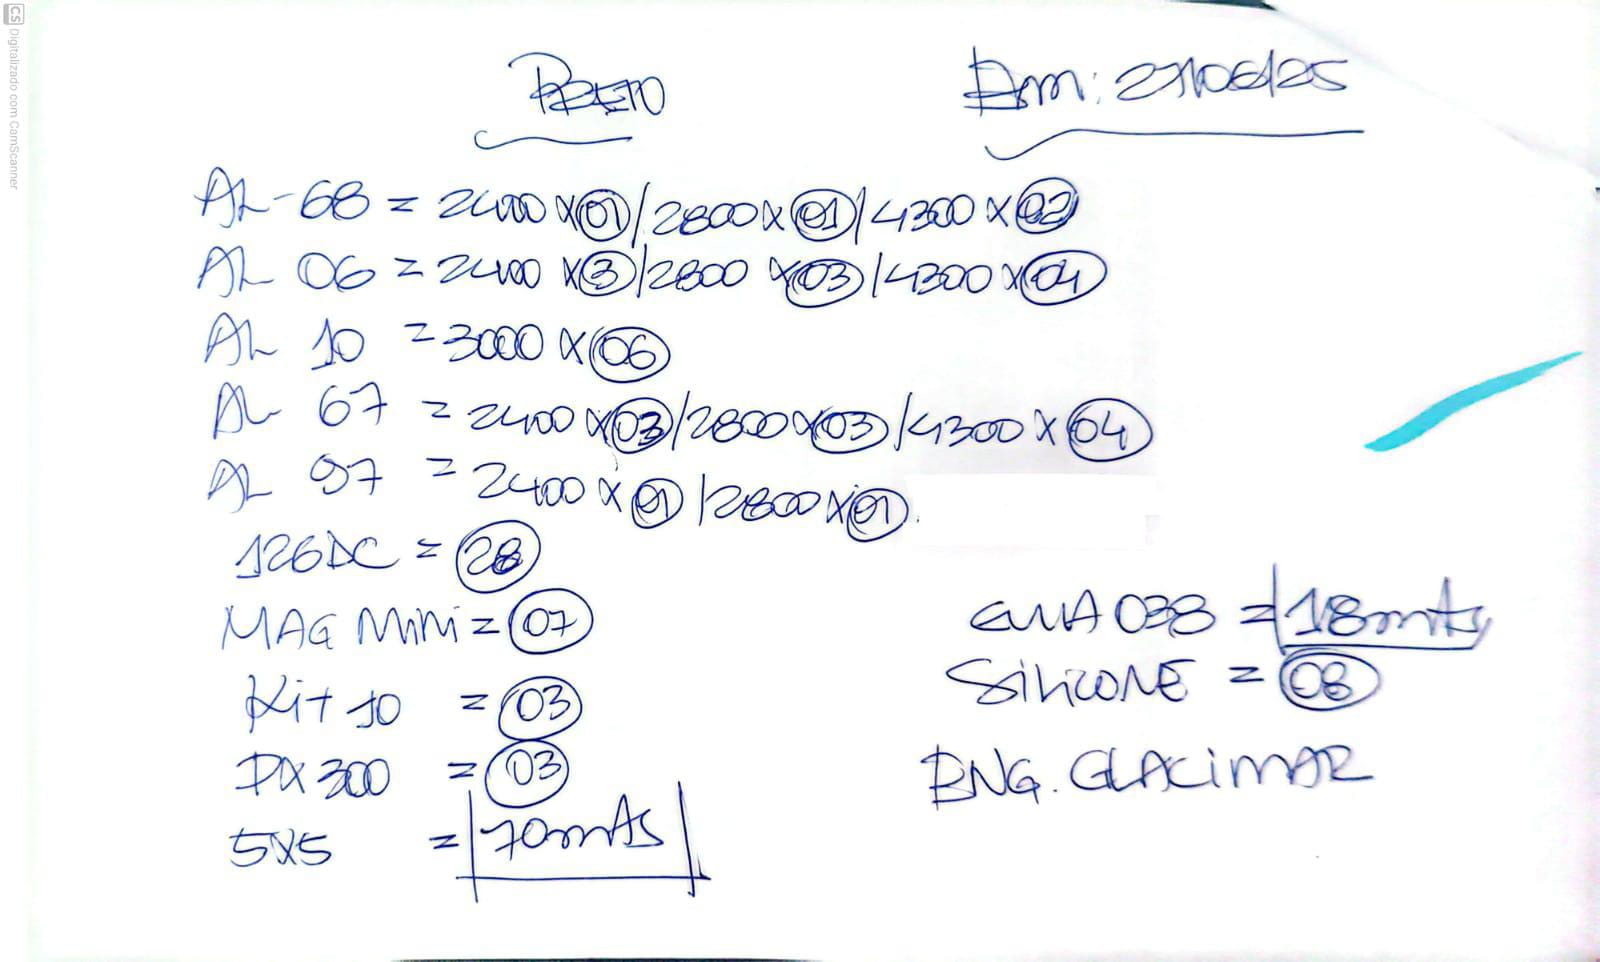 PRETO
Em: 27/06/25
AL-68 = 2400 x 01 / 2800 x 01 / 4300 x 02
AL 06 = 2400 x 3 / 2800 x 03 / 4300 x 04
AL 10 = 3000 x 06
AL 67 = 2400 x 03 / 2800 x 03 / 4300 x 04
AL 97 = 2400 x 01 / 2800 x 01.
126DC = 28
MAG MiNi = 07
Kit 10 = 03
DX 300 = 03
5x5 = 70mts
GUIA 038 = 18mts
SiLiCONE = 08
ENG. GLACiMAR
CS Digitalizado com CamScanner